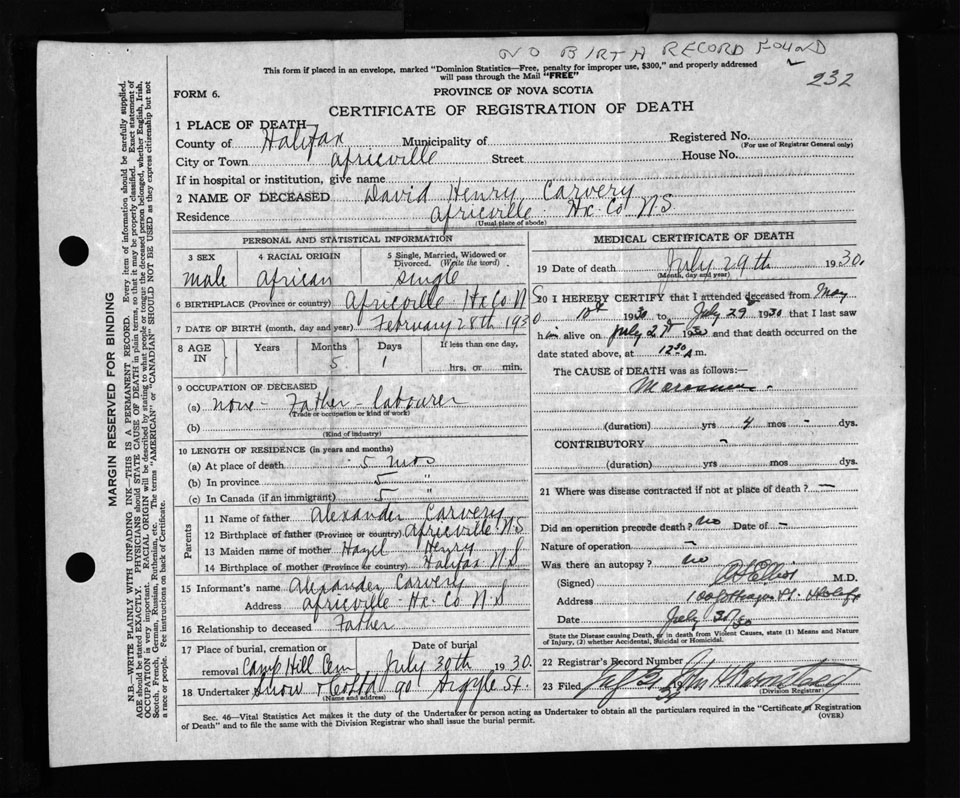 NO BIRTH RECORD FOUND
232
This form if placed in an envelope, marked "Dominion Statistics—Free, penalty for improper use, $300," and properly addressed
will pass through the Mail "FREE"
FORM 6.
PROVINCE OF NOVA SCOTIA
CERTIFICATE OF REGISTRATION OF DEATH
1 PLACE OF DEATH
County of Halifax Municipality of Registered No.
(For use of Registrar General only)
City or Town Africville Street House No.
If in hospital or institution, give name
2 NAME OF DECEASED David Henry Carvery
Residence Africville Hx. Co N.S
(Usual place of abode)
PERSONAL AND STATISTICAL INFORMATION
3 SEX 4 RACIAL ORIGIN 5 Single, Married, Widowed or
Divorced. (Write the word)
male African single
6 BIRTHPLACE (Province or country) Africville Hx Co N S
7 DATE OF BIRTH (month, day and year) February 28th 193
8 AGE IN Years Months Days If less than one day,
5 1 hrs. or min.
9 OCCUPATION OF DECEASED
(a) none - Father - labourer
(Trade or occupation or kind of work)
(b)
(Kind of industry)
10 LENGTH OF RESIDENCE (in years and months)
(a) At place of death 5 mos
(b) In province 5 "
(c) In Canada (if an immigrant) 5 "
Parents
11 Name of father Alexander Carvery
12 Birthplace of father (Province or country) Africville N.S
13 Maiden name of mother Hazel Henry
14 Birthplace of mother (Province or country) Halifax N.S
15 Informant's name Alexander Carvery
Address Africville Hx. Co N.S
16 Relationship to deceased Father
17 Place of burial, cremation or Date of burial
removal Camp Hill Cem July 30th 1930.
18 Undertaker Snow & Co Ltd 90 Argyle St.
(Name and address)
MEDICAL CERTIFICATE OF DEATH
19 Date of death July 29th 1930.
(Month, day and year)
20 I HEREBY CERTIFY that I attended deceased from May
1930 to July 29 1930 that I last saw
him alive on July 1930 and that death occurred on the
date stated above, at 12 30 A m.
The CAUSE of DEATH was as follows:—
Marasmus -
(duration) yrs 4 mos - dys.
CONTRIBUTORY -
(duration) yrs mos dys.
21 Where was disease contracted if not at place of death? —
Did an operation precede death? no Date of -
Nature of operation -
Was there an autopsy? no
(Signed) M.D.
Address Halifax
Date July 30/30
State the Disease causing Death, or in death from Violent Causes, state (1) Means and Nature
of Injury, (2) whether Accidental, Suicidal or Homicidal.
22 Registrar's Record Number
23 Filed 19
(Division Registrar)
Sec. 46—Vital Statistics Act makes it the duty of the Undertaker or person acting as Undertaker to obtain all the particulars required in the "Certificate of Registration
of Death" and to file the same with the Division Registrar who shall issue the burial permit.
(OVER)
MARGIN RESERVED FOR BINDING
N.B.—WRITE PLAINLY WITH UNFADING INK—THIS IS A PERMANENT RECORD. Every item of information should be carefully supplied.
AGE should be stated EXACTLY. PHYSICIANS should STATE CAUSE OF DEATH in plain terms, so that it may be properly classified. Exact statement of
OCCUPATION is very important. RACIAL ORIGIN will be described by stating to what people or tongue the deceased person belonged, whether English, Irish,
Scotch, French, German, Russian, Ruthenian, etc. The terms "AMERICAN" or "CANADIAN" SHOULD NOT BE USED as they express citizenship but not
a race or people. Fee instructions on back of Certificate.